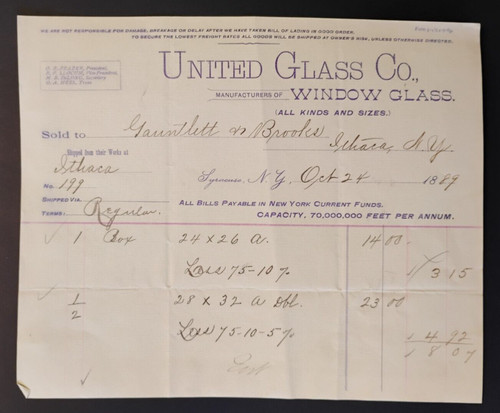 WE ARE NOT RESPONSIBLE FOR DAMAGE, BREAKAGE OR DELAY AFTER WE HAVE TAKEN BILL OF LADING IN GOOD ORDER.
TO SECURE THE LOWEST FREIGHT RATES ALL GOODS WILL BE SHIPPED AT OWNER'S RISK, UNLESS OTHERWISE DIRECTED.
UNITED GLASS CO.,
MANUFACTURERS OF WINDOW GLASS.
(ALL KINDS AND SIZES.)
Sold to Gauntlett & Brooks
Ithaca, N.Y.
Shipped from their Works at
Ithaca
Syracuse, N.Y. Oct 24 1889
No. 199
SHIPPED VIA
ALL BILLS PAYABLE IN NEW YORK CURRENT FUNDS.
TERMS: Regular.
CAPACITY, 70,000,000 FEET PER ANNUM.
1 Box 24 x 26 A. 14 00
Less 75-10 % 3 15
1/2 28 x 32 A Dbl. 23 00
Less 75-10-5 % 4 92
8 07